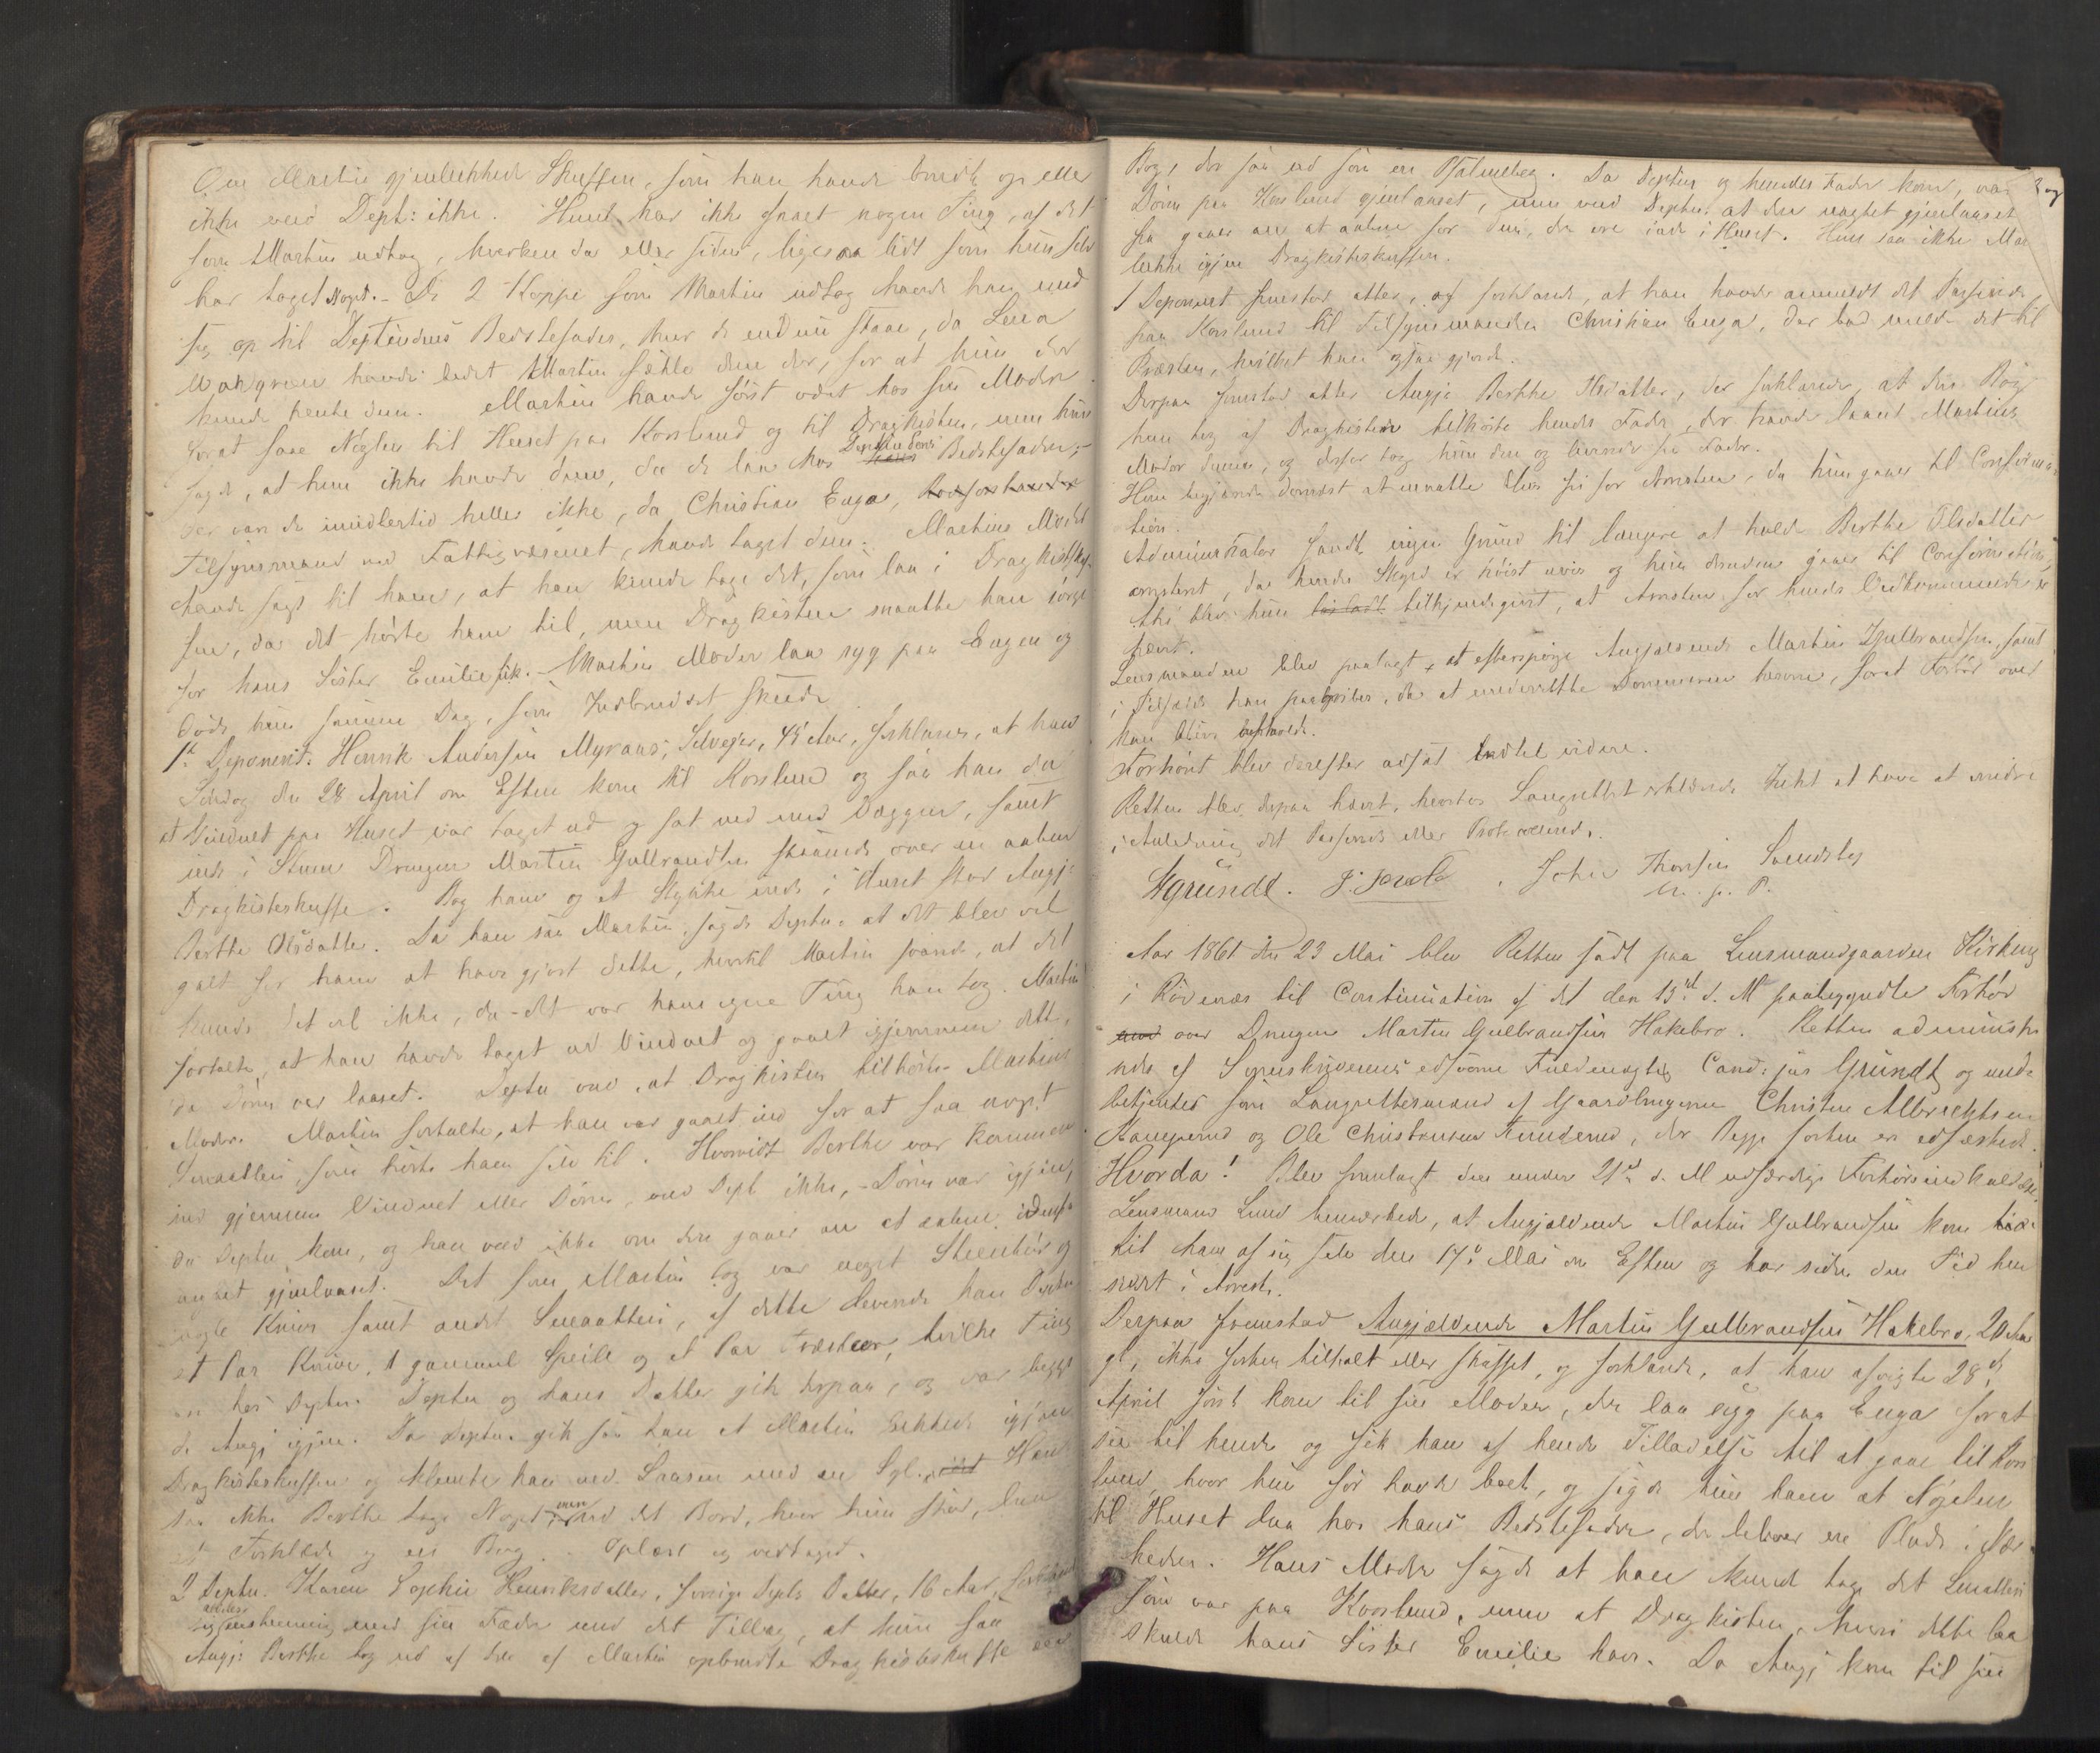 Om Martin gjenlukkede Skuffen, som han havde brudt op eller
ikke veed Dept: ikke. Hun har ikke faaet nogen Ting, af det
som Martin udtog, hverken da eller siden, ligesaa lidt som hun selv
har taget Noget. - De 2 Koppe som Martin udtog havde han med
sig op til Deptindens Bedstefader, hvor de endnu staae, da Lena
havde bedet Martin sætte dem der, for at hun der
kunde hente dem. Martin havde først været hos sin Moder
for at faae Nøglen til Huset paa Korslund og til Dragkisten, men hun
sagde, at hun ikke havde dem, da de laa hos Deptindens Bedstefader;
der var de imidlertid heller ikke, da Christian Enga,
Tilsynsmand ved Fattigvæsenet, havde taget dem. Martins Moder
havde sagt til ham, at han kunde tage det, som laa i Dragkistskuf-
fen, da det hørte ham til, men Dragkisten maatte han sørge
for hans Søster Emilie fik. - Martins Moder laa syg paa Engen og
døde hun samme Dag, som Indbruddet skede
1ste Deponent: Henrik Andersen Myraas, Selveier, 45 Aar, forklarer, at han
Søndag den 28 April om Eften kom til Korslund og saa han da
at Vinduet paa Huset var taget ud og sat ned med Væggen, samt
inde i Stuen Drengen Martin Gulbrandsen staaende over en aaben
Dragkisteskuffe. Bag ham og et Stykke inde i Huset stod Angj:
Berthe Olsdatter. Da han saa Martin, sagde Depten at det blev vel
galt for ham at have gjort dette, hvortil Martin svarede, at det
kunde det vel ikke, da det var hans egne Ting han tog. Martin
fortalte, at han havde taget ud Vinduet og gaaet igjennem dette,
da Døren var laaset. Depten veed, at Dragkisten tilhørte Martins
Moder. Martin fortalte, at han var gaaet ind for at faa noget
Smaatteri, som hørte ham selv til. Hvorvidt Berthe var kommen
ind gjennem Vinduet eller Døren, veed Dept ikke, - Døren var igjen,
da Depten kom, og han veed ikke om den gaaer an at aabne indenfra
uagtet gjenlaaset. Det som Martin tog var noget Steentøi og
nogle Knive samt andet Smaatteri, af dette leverede han Depten
et Par Knive, 1 gammel Speile og et Par Træskeer, hvilke Ting
hos Depten. Depten og hans Datter gik derpaa, og var begge
de Angj igjen. Da Depten gik saa han at Martin lukkede igjen
Dragkisteskuffen og klemte han ned Laasen med en Syl. Han
saa ikke Berthe tage Noget, men ved det Bord, hvor hun stod, laa
et Forklæde og en Bog. - Oplæst og vedtaget.
2 Depten. Karen Sophie Henriksdatter, forrige Depts Datter, 16 Aar, forklarede
aldeles
overensstemmig med sin Fader med det Tillæg, at hun saa
Angj: Berthe tog ud af den af Martin opbrudte Dragkisteskuffe een
Bog, der saa ud som en Psalmebog. Da Depten og hendes Fader kom, var
Døren paa Korslund gjenlaaset, men veed Depten at den uagtet gjenlaaset
saa gaaer an at aabne for dem, der ere inde i Huset. Hun saa ikke Mar
lukke igjen Dragkisteskuffen.
1 Deponent fremstod atter, og forklarede, at han havde anmeldt det Passerede
paa Korslund til Tilsynsmanden Christian Enga, der bad melde det til
Præsten, hvilket han ogsaa gjorde.
Derpaa fremstod atter Angje Berthe Olsdatter, der forklarede, at den Bog
hun tog af Dragkisten tilhørte hendes Fader, der havde laant Martins
Moder denne, og derfor tog hun den og leverede sin Fader.
Hun begjærede dernæst at maatte blive fri for Arresten, da hun gaaer til Confirma-
tion.
Administrator fandt ingen Grund til længere at holde Berthe Olsdatter
arresteret, da hendes Skyld er høist uvis og hun desuden gaaer til Confirmation,
thi blev hun tilkjendegivet, at Arresten for hendes Vedkommende er
hævet.
Lensmanden blev paalagt, at efterspørge Angjældende Martin Gulbrandsen, samt
i Tilfælde han paagribes, da at underrette Dommeren herom, forat Forhør over
ham blive beskaaret.
Forhøret blev derefter udsat indtil videre.
Retten blev derpaa hævet, hvorhos Laugrettet erklærede Intet at have at erindre
i Anledning det Passerede eller Protocollerede.
SGründt. John Thorsen Svendsby
m. p. P.
Aar 1861 den 23 Mai blev Retten sadt paa Lensmandgaarden Kirkeng
i Rødenæs til Continuation af det den 15de d. M paabegyndte Forhør
over Drengen Martin Gulbrandsen Hakebro. Retten administre-
redes af Sorenskriverens edsvorne Fuldmægtig Cand: jur Gründt og med-
betjentes som Laugrettesmænd af Gaardbrugerne Christen Albrechtsen
Kamperud og Ole Christensen Tunderud, der Begge forhen ere edfæstede.
Hvorda! Blev fremlagt den under 21de d. M udfærdige Forhørsindkaldelse.
Lensmand Lund bemærkede, at Angjældende Martin Gulbrandsen kom
til ham af sig selv den 17de Mai om Eften og har siden den Tid hen
siddet i Arrest.
Derpaa fremstod Angjældende Martin Gulbrandsen Hakebro, 20 Aar
gl, ikke forhen tiltalt eller straffet, og forklarede, at han afvigte 28de
April først kom til sin Moder, der laa syg paa Enga for at
see til hende og fik han af hende Tilladelse til at gaae til Kors-
lund, hvor hun før havde boet, og sagde hun ham at Nøglen
til Huset laa hos hans Bedstefader, der beboer en Plads i Nær-
heden. Hans Moder sagde at han kunde tage det Smatteri
som var paa Korslund, men at Dragkisten, hvori dette laa
skulde hans Søster Emilie have. Da Angj kom til sin